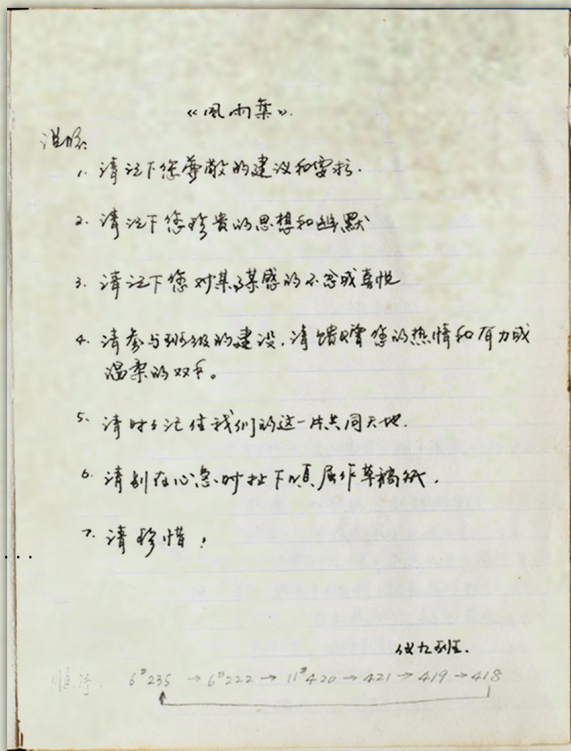 《风雨集》.
说明:
1. 请记下您尊敬的建议和要求.
2. 请记下您珍贵的思想和幽默
3. 请记下您对某事某感的不忿或喜悦
4. 请参与班级的建设,请馈赠您的热情和有力或
温柔的双手。
5. 请时时记住我们的这一片共同天地.
6. 请别在心急时扯下页当作草稿纸.
7. 请珍惜!
九班.
顺序: 6#235 → 6#222 → 11#420 → 421 → 419 → 418